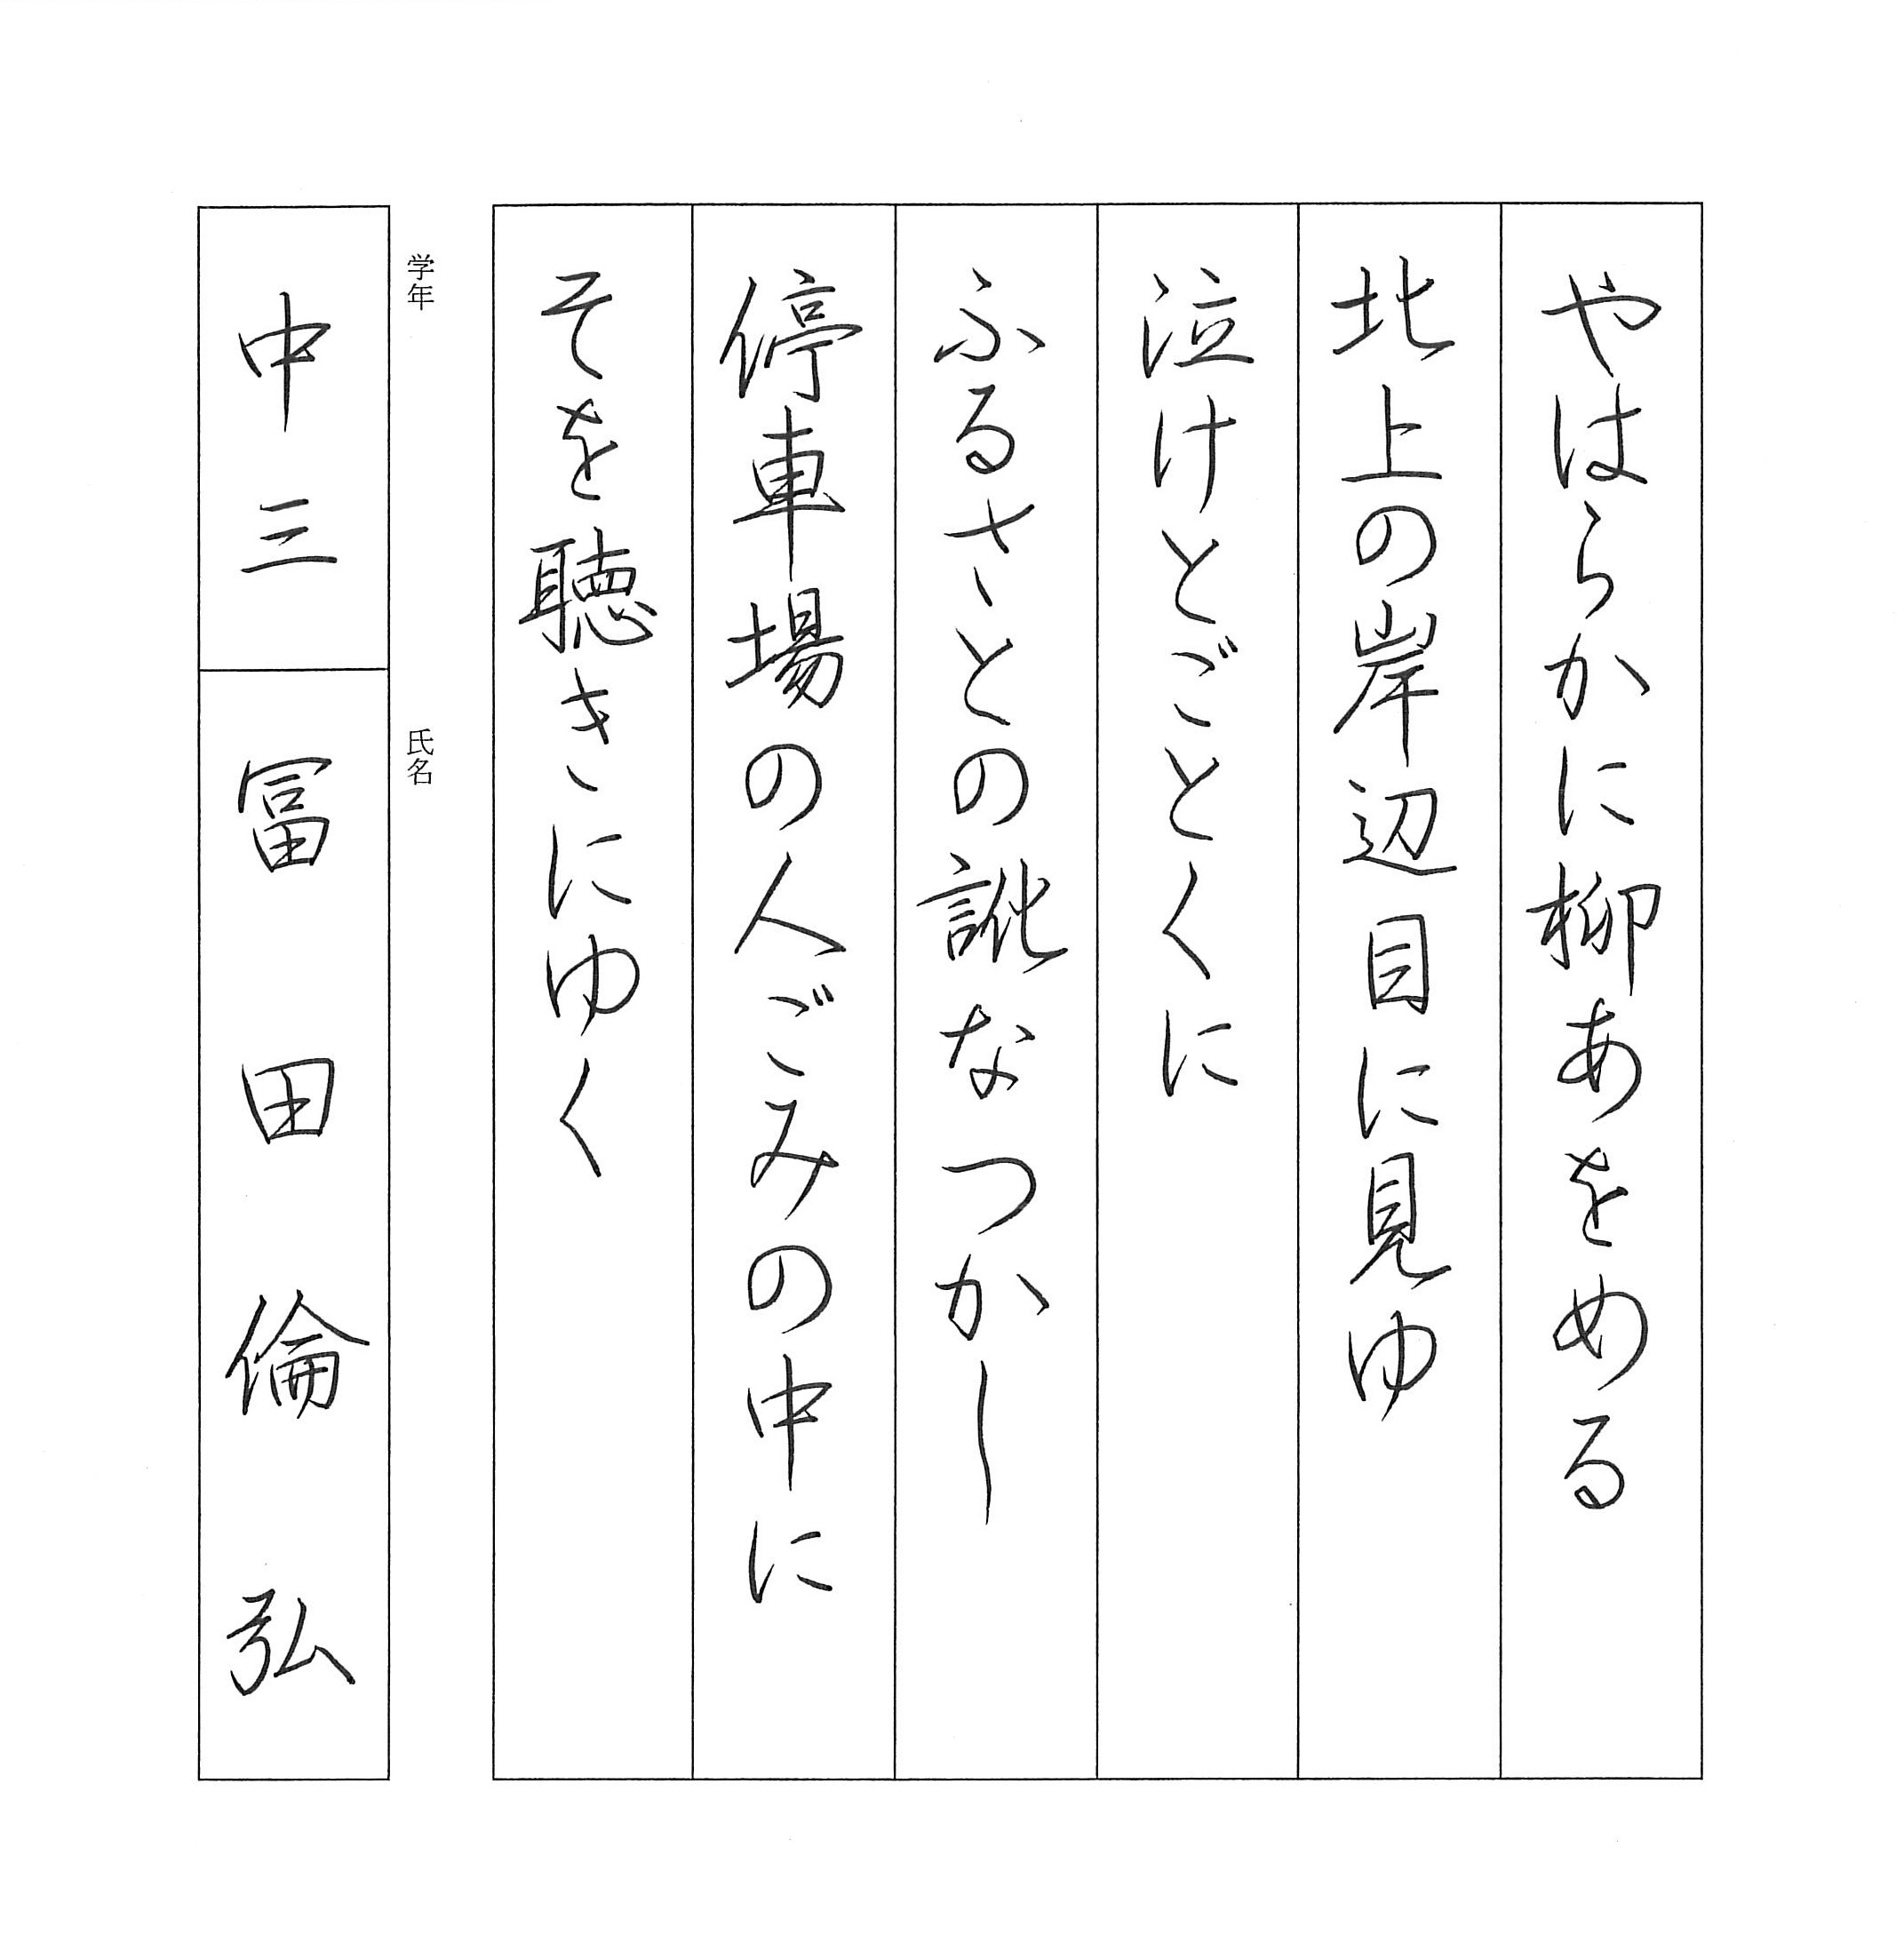 やはらかに柳あをめる
北上の岸辺目に見ゆ
泣けとごとくに
ふるさとの訛なつかし
停車場の人ごみの中に
そを聴きにゆく
学年
中三
氏名
冨田倫弘